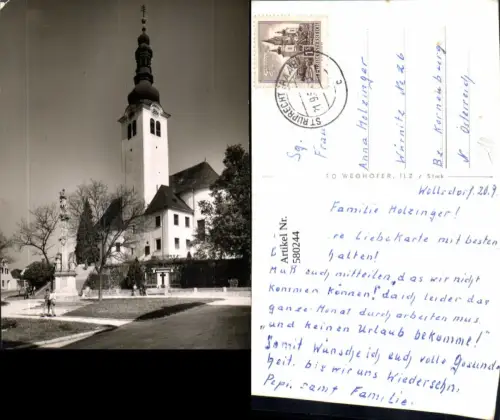 REPUBLIK ÖSTERREICH
ST. RUPRECHT
Sg.
Frau
Anna Holzinger
Wörnitz № 26
Bz. Korneuburg
N. Österreich
FO WEGHOFER, ILZ / Stmk
Artikel Nr.
580244
Wollsdorf 20.9.
Familie Holzinger!
Liebe Karte mit besten
halten!
Muß euch mitteilen, das wir nicht
kommen können! da ich leider das
ganse Monat durch arbeiten mus
"und keinen Urlaub bekomme!"
Somit Wünsche ich euch volle Gesund-
heit. bis wir uns Wiedersehn.
Pepi samt Familie.